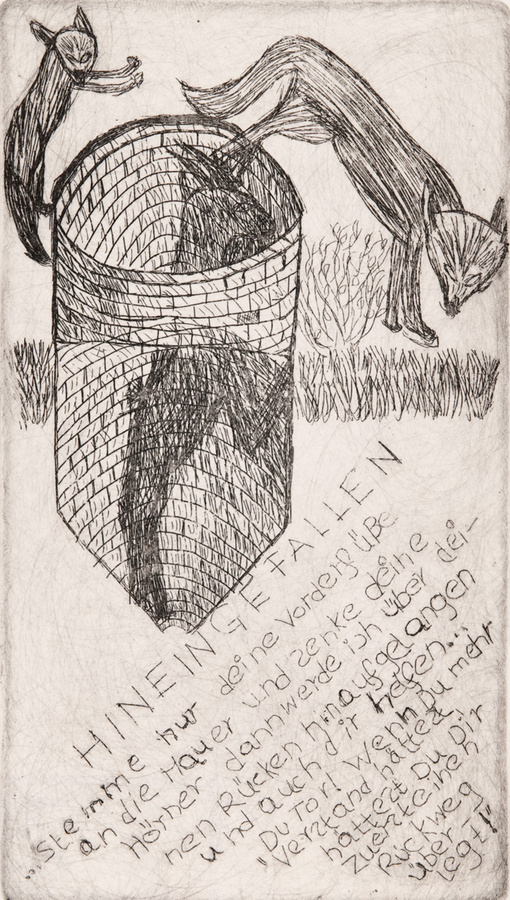 HINEINGEFALLEN
„Stemme nur deine Vorderfüße
an die Mauer und senke deine
Hörner dann werde ich über dei-
nen Rücken hinaufgelangen
und auch dir helfen..."
"Du Tor! Wenn Du mehr
Verstand hättest
hättest Du Dir
zuerst einen
Rückweg
über-
legt!"